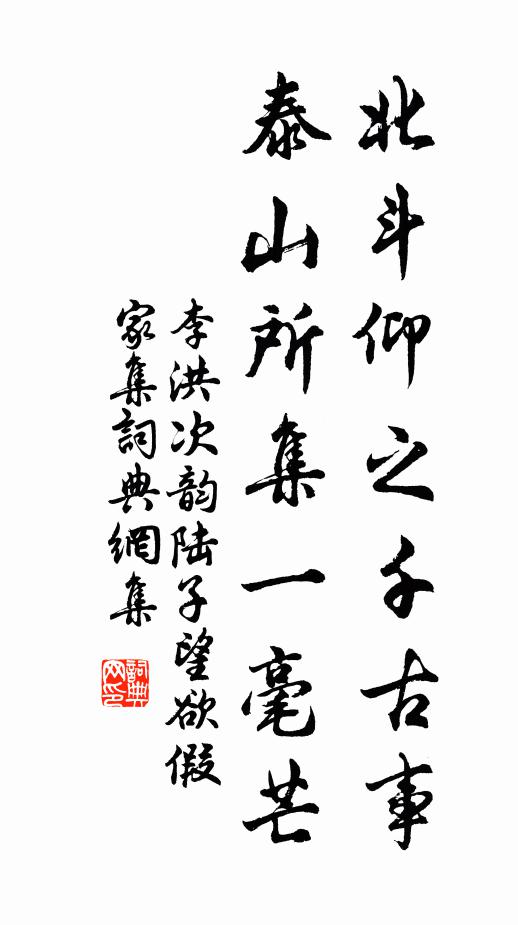 北斗仰之千古事
泰山所集一毫芒
李洪次韵陆子望欲假
家集詞典網集
詞典
网印